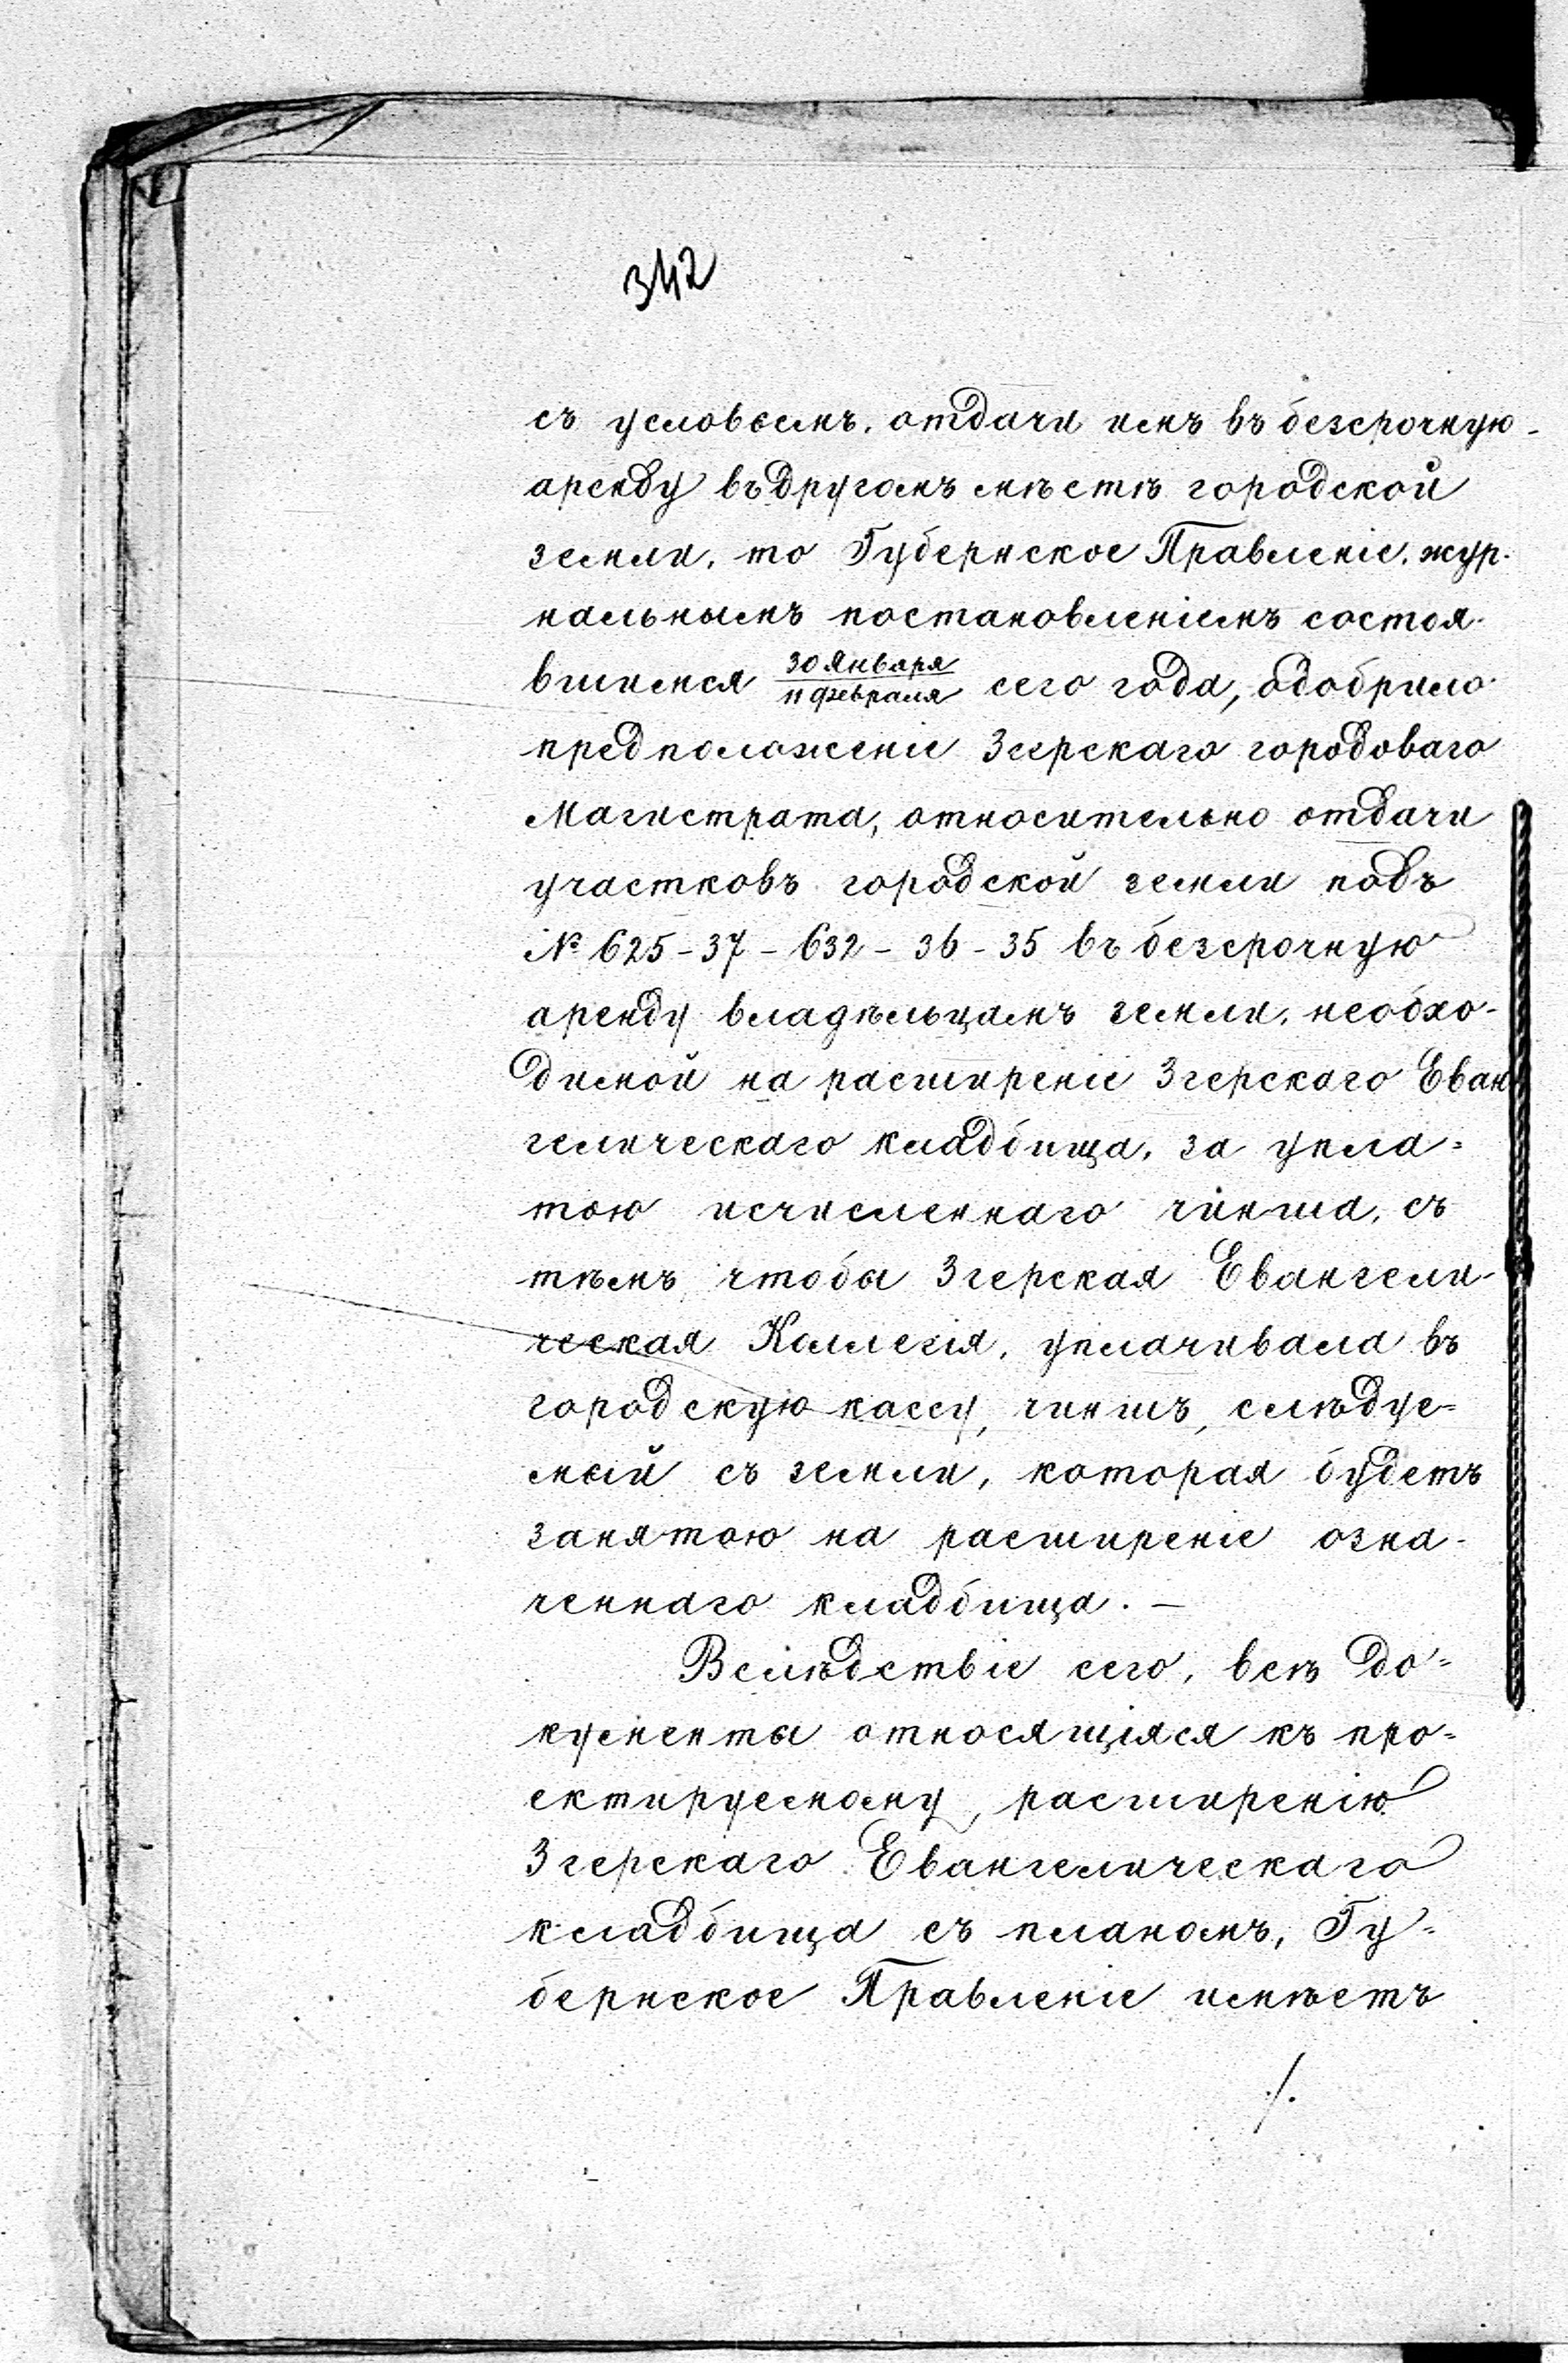 342
съ условьемъ, отдачи имъ въ безсрочную
аренду въ другомъ мѣстѣ городской
земли, то Губернское Правленіе, жур-
нальнымъ постановленіемъ состоя-
вшимся 30 Января / 11 Февраля сего года, одобрило
предположеніе Згерскаго городоваго
Магистрата, относительно отдачи
участковъ городской земли подъ
№ 625-37-632-36-35 въ безсрочную
аренду владѣльцамъ земли, необхо-
димой на расширеніе Згерскаго Еван
гелическаго кладбища, за упла=
тою исчисленнаго чинша, съ
тѣмъ чтобы Згерская Евангели-
ческая Коллегія, уплачивала въ
городскую кассу, чиншъ, слѣдуе=
мый съ земли, которая будетъ
занятою на расширеніе озна-
ченнаго кладбища. —
Вслѣдствіе сего, всѣ до=
кументы относящіяся къ про=
ектируемому, расширенію
Згерскаго Евангелическаго
кладбища съ планомъ, Гу=
бернское Правленіе имѣетъ
./.